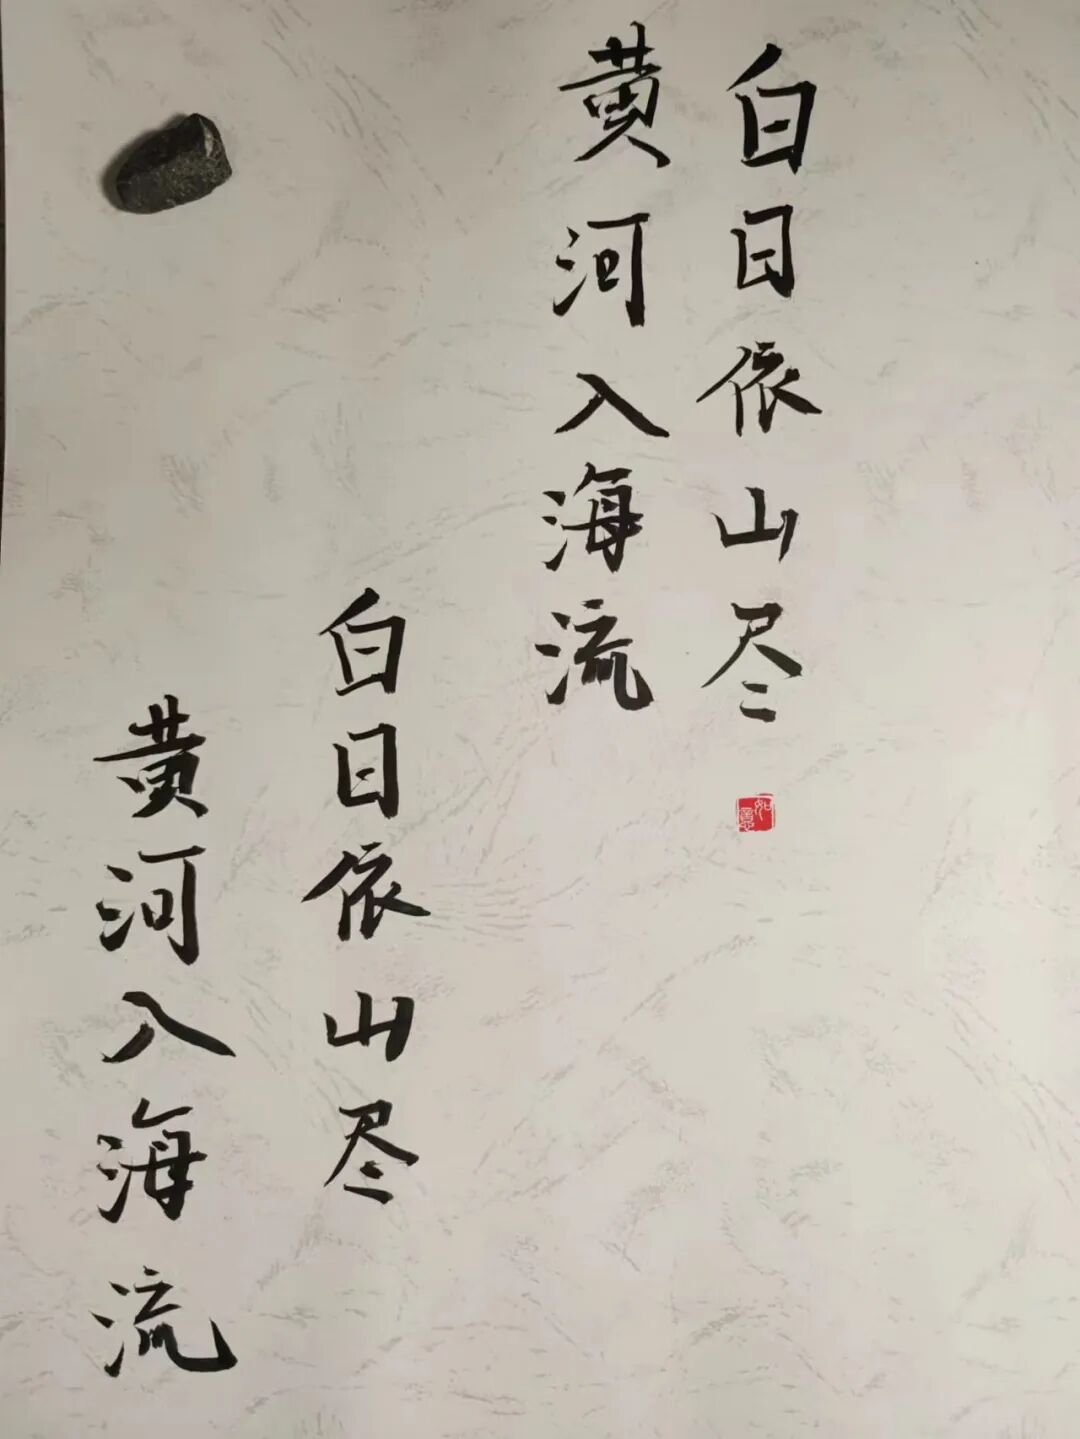 白日依山尽
黄河入海流
如意
白日依山尽
黄河入海流